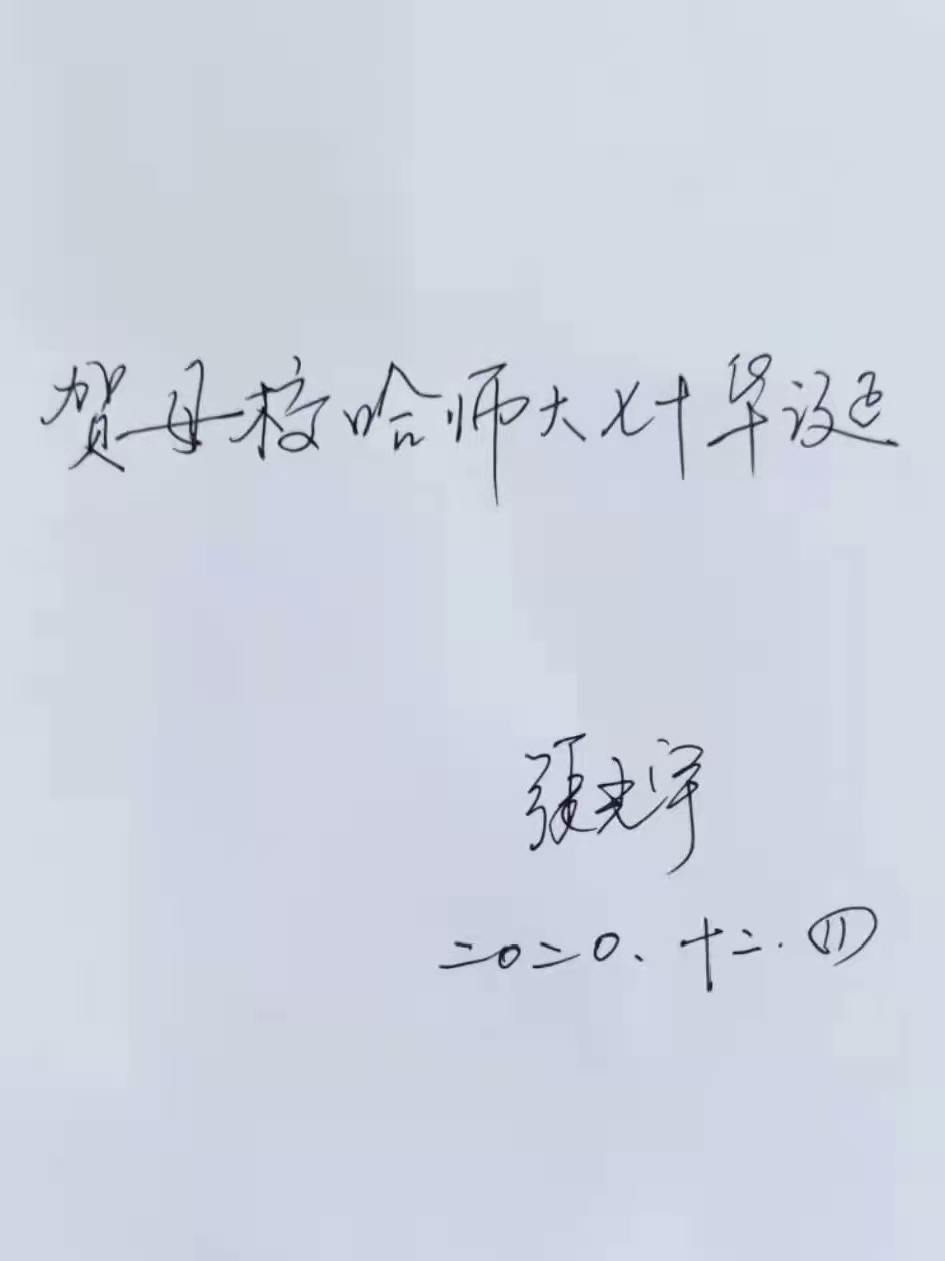 贺母校哈师大七十华诞
張光宇
二〇二〇、十二.四